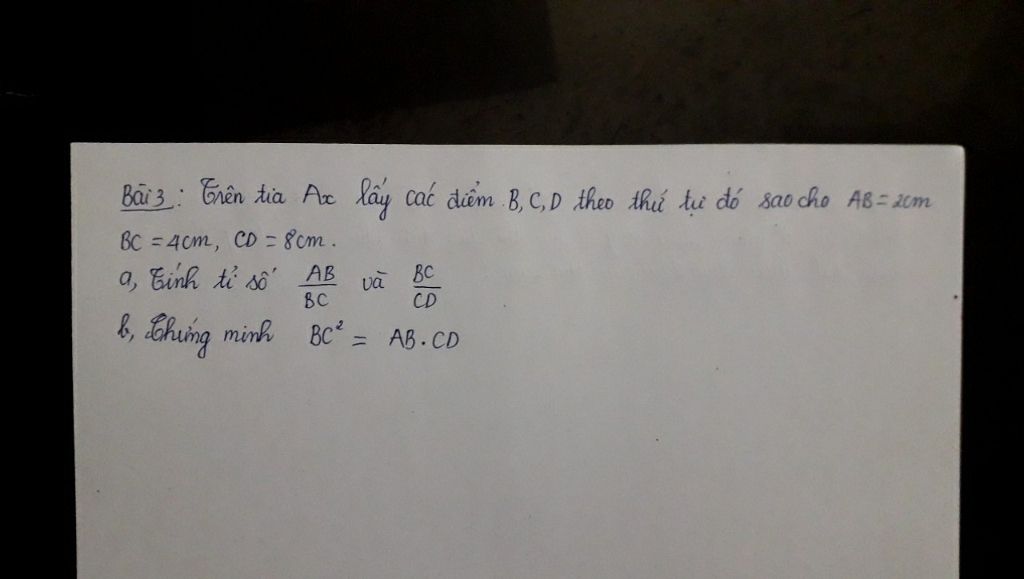 Bài 3: Trên tia Ax lấy các điểm B, C, D theo thứ tự đó sao cho AB = 2cm
BC = 4cm, CD = 8cm.
a, Tính tỉ số AB/BC và BC/CD
b, Chứng minh BC² = AB . CD